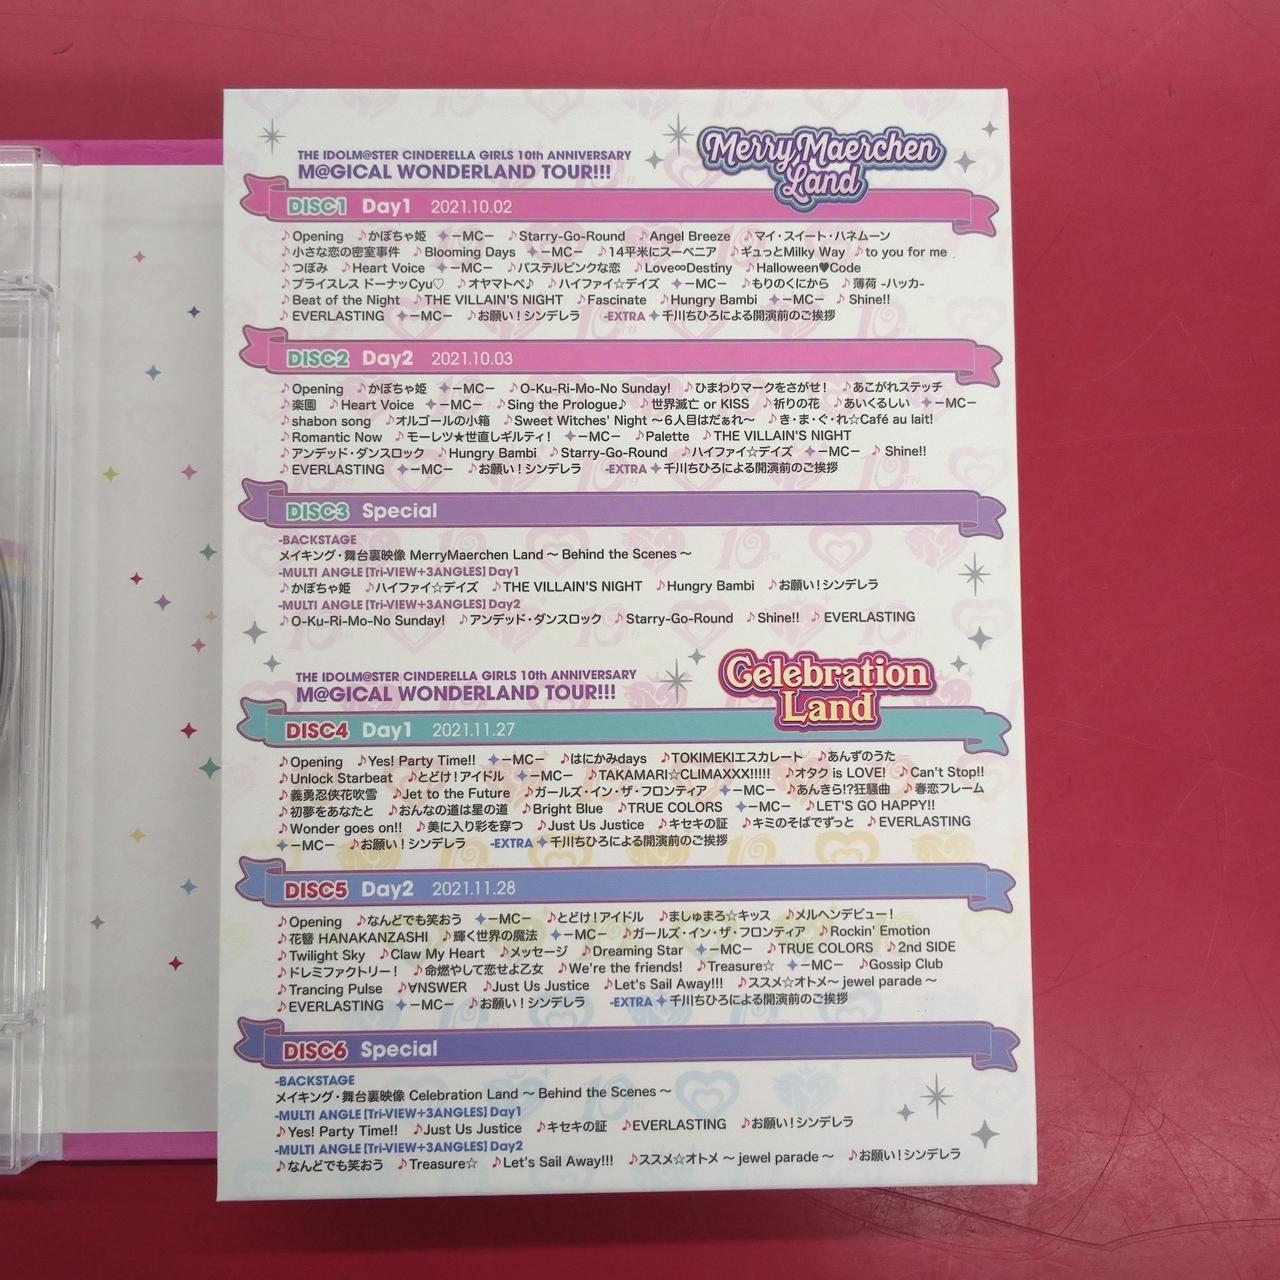 THE IDOLM@STER CINDERELLA GIRLS 10th ANNIVERSARY
M@GICAL WONDERLAND TOUR!!!
Merry Maerchen
Land
DISC1 Day1 2021.10.02
♪Opening ♪かぼちゃ姫 ✦−MC− ♪Starry-Go-Round ♪Angel Breeze ♪マイ・スイート・ハネムーン
♪小さな恋の密室事件 ♪Blooming Days ✦−MC− ♪14平米にスーベニア ♪ギュっとMilky Way ♪to you for me
♪つぼみ ♪Heart Voice ✦−MC− ♪パステルピンクな恋 ♪Love∞Destiny ♪Halloween♥Code
♪プライスレス ドーナッCyu♡ ♪オヤマトペ♪ ♪ハイファイ☆デイズ ✦−MC− ♪もりのくにから ♪薄荷 -ハッカ-
♪Beat of the Night ♪THE VILLAIN'S NIGHT ♪Fascinate ♪Hungry Bambi ✦−MC− ♪Shine!!
♪EVERLASTING ✦−MC− ♪お願い！シンデレラ -EXTRA ✦千川ちひろによる開演前のご挨拶
DISC2 Day2 2021.10.03
♪Opening ♪かぼちゃ姫 ✦−MC− ♪O-Ku-Ri-Mo-No Sunday! ♪ひまわりマークをさがせ！ ♪あこがれステッチ
♪楽園 ♪Heart Voice ✦−MC− ♪Sing the Prologue♪ ♪世界滅亡 or KISS ♪祈りの花 ♪あいくるしい ✦−MC−
♪shabon song ♪オルゴールの小箱 ♪Sweet Witches' Night 〜6人目はだぁれ〜 ♪き・ま・ぐ・れ☆Café au lait!
♪Romantic Now ♪モーレツ★世直しギルティ！ ✦−MC− ♪Palette ♪THE VILLAIN'S NIGHT
♪アンデッド・ダンスロック ♪Hungry Bambi ♪Starry-Go-Round ♪ハイファイ☆デイズ ✦−MC− ♪Shine!!
♪EVERLASTING ✦−MC− ♪お願い！シンデレラ -EXTRA ✦千川ちひろによる開演前のご挨拶
DISC3 Special
-BACKSTAGE
メイキング・舞台裏映像 MerryMaerchen Land 〜 Behind the Scenes 〜
-MULTI ANGLE [Tri-VIEW+3ANGLES] Day1
♪かぼちゃ姫 ♪ハイファイ☆デイズ ♪THE VILLAIN'S NIGHT ♪Hungry Bambi ♪お願い！シンデレラ
-MULTI ANGLE [Tri-VIEW+3ANGLES] Day2
♪O-Ku-Ri-Mo-No Sunday! ♪アンデッド・ダンスロック ♪Starry-Go-Round ♪Shine!! ♪EVERLASTING
THE IDOLM@STER CINDERELLA GIRLS 10th ANNIVERSARY
M@GICAL WONDERLAND TOUR!!!
Celebration
Land
DISC4 Day1 2021.11.27
♪Opening ♪Yes! Party Time!! ✦−MC− ♪はにかみdays ♪TOKIMEKIエスカレート ♪あんずのうた
♪Unlock Starbeat ♪とどけ！アイドル ✦−MC− ♪TAKAMARI☆CLIMAXXX!!!!! ♪オタク is LOVE! ♪Can't Stop!!
♪義勇忍侠花吹雪 ♪Jet to the Future ♪ガールズ・イン・ザ・フロンティア ✦−MC− ♪あんきら!?狂騒曲 ♪春恋フレーム
♪初夢をあなたと ♪おんなの道は星の道 ♪Bright Blue ♪TRUE COLORS ✦−MC− ♪LET'S GO HAPPY!!
♪Wonder goes on!! ♪美に入り彩を穿つ ♪Just Us Justice ♪キセキの証 ♪キミのそばでずっと ♪EVERLASTING
✦−MC− ♪お願い！シンデレラ -EXTRA ✦千川ちひろによる開演前のご挨拶
DISC5 Day2 2021.11.28
♪Opening ♪なんどでも笑おう ✦−MC− ♪とどけ！アイドル ♪ましゅまろ☆キッス ♪メルヘンデビュー！
♪花簪 HANAKANZASHI ♪輝く世界の魔法 ✦−MC− ♪ガールズ・イン・ザ・フロンティア ♪Rockin' Emotion
♪Twilight Sky ♪Claw My Heart ♪メッセージ ♪Dreaming Star ✦−MC− ♪TRUE COLORS ♪2nd SIDE
♪ドレミファクトリー！ ♪命燃やして恋せよ乙女 ♪We're the friends! ♪Treasure☆ ✦−MC− ♪Gossip Club
♪Trancing Pulse ♪∀NSWER ♪Just Us Justice ♪Let's Sail Away!!! ♪ススメ☆オトメ〜 jewel parade 〜
♪EVERLASTING ✦−MC− ♪お願い！シンデレラ -EXTRA ✦千川ちひろによる開演前のご挨拶
DISC6 Special
-BACKSTAGE
メイキング・舞台裏映像 Celebration Land 〜 Behind the Scenes 〜
-MULTI ANGLE [Tri-VIEW+3ANGLES] Day1
♪Yes! Party Time!! ♪Just Us Justice ♪キセキの証 ♪EVERLASTING ♪お願い！シンデレラ
-MULTI ANGLE [Tri-VIEW+3ANGLES] Day2
♪なんどでも笑おう ♪Treasure☆ ♪Let's Sail Away!!! ♪ススメ☆オトメ 〜 jewel parade 〜 ♪お願い！シンデレラ